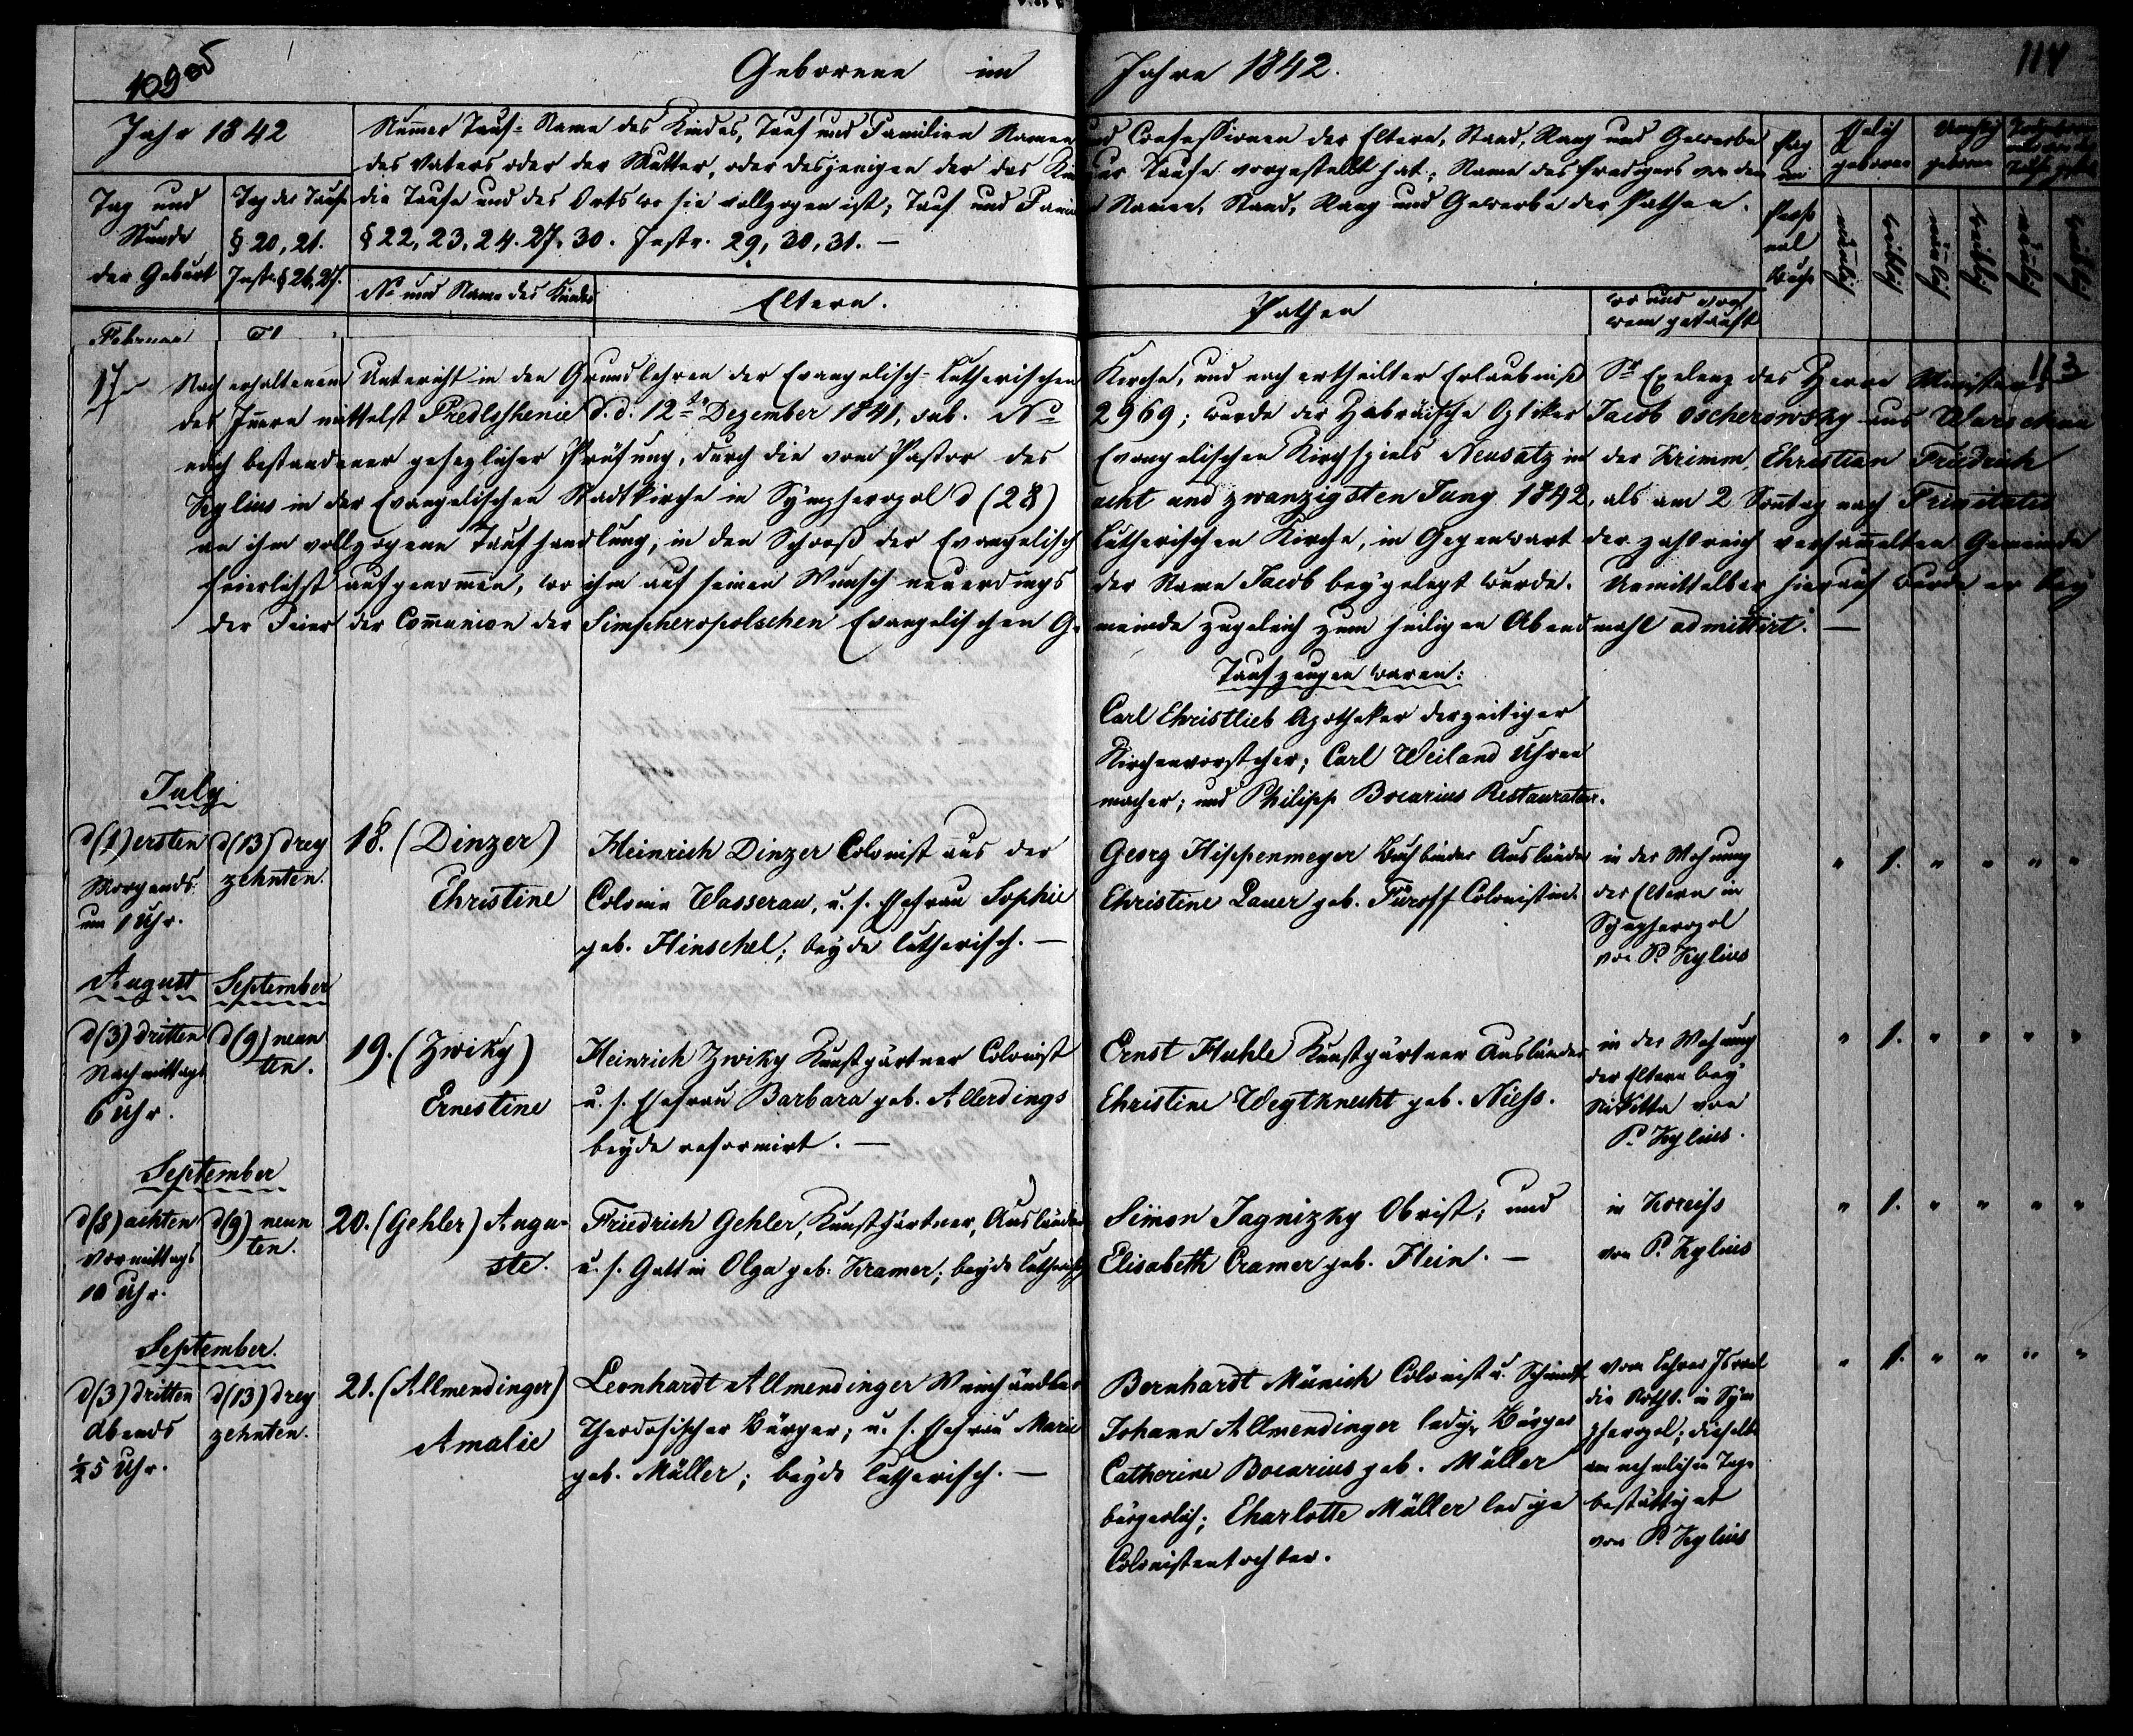 109 os
Geborene im Jahre 1842.
114
Jahr 1842
Tag und Stunde der Geburt
Tag der Taufe § 20, 21. Instr. § 26, 27.
Numer Tauf-Name des Kindes, Tauf und Familien Namen und Confessionen der Eltern, Stand, Rang und Gewerbe
des Vaters oder der Mutter, oder desjenigen der das Kin zur Taufe vorgestellt hat; Name des Predigers von dem
die Taufe und des Orts wo sie vollzogen ist; Tauf und Famil Namen, Stand, Rang und Gewerbe der Pathen.
§ 22, 23, 24. 27, 30. Instr. 29, 30, 31. —
No und Name des Kindes
Eltern.
Pathen
wo und von wem getauft
Pag im Perso nal Buch
Ehelich geboren
geboren
männlich
weiblich
männlich
weiblich
männlich
weiblich
Februar
113
17 Nach erhaltenem Unterricht in den Grundlehren der Evangelisch-Lutherischen Kirche, und nach ertheilter Erlaubniß Sr Exelenz des Herrn Ministers
des Innern mittelst Predloshenie d. d. 12ten Dezember 1841, sub. No 2969; wurde der Hebräische Optiker Jacob Oscherowsky aus Warschau
nach bestandener gesezlicher Prüfung, durch die vom Pastor des Evangelischen Kirchspiels Neusatz in der Krimm, Christian Friedrich
Kylius in der Evangelischen Stadtkirche in Sympheropol d (28) acht und zwanzigsten Juny 1842, als am 2 Sonntag nach Trinitatis
an ihm vollzogene Taufhandlung, in den Schooß der Evangelisch Lutherischen Kirche, in Gegenwart der zahlreich versammelten Gemeinde
feierlichst aufgenommen, wo ihm auf seinen Wunsch neuerdings der Name Jacob beygelegt wurde. Unmittelbar hierauf wurde er bey
der Feier der Communion der Simpheropolschen Evangelischen Gemeinde zugleich zum heiligen Abendmahl admittirt. —
Taufzeugen waren:
Carl Christlieb Apotheker derzeitiger
Kirchenvorsteher; Carl Weiland Uhren
macher; und Philipp Bocarius Restaurateur.
July
d (1) ersten
Morgends
um 1 Uhr.
d (13) drey
zehnten.
18. (Dinzer)
Christine
Heinrich Dinzer Colonist aus der
Colonie Wasserau, u. s. Ehefrau Sophie
geb. Hinschel; beyde lutherisch. —
Georg Hippenmeyer Buchbinder Ausländer
Christine Lauer geb. Füroff Colonistin.
in der Wohnung
der Eltern in
Sympheropol
von P. Kylius
" 1. " " " "
August
September
d (3) dritten
Nachmittags
6 Uhr.
d (9) neun
ten.
19. (Zwiky)
Ernestine
Heinrich Zwiky Kunstgärtner Colonist
u. s. Ehefrau Barbara geb. Allerdings
beyde reformirt. —
Ernst Huhle Kunstgärtner Ausländer
Christine Weytknecht geb. Niess.
in der Wohnung
der Eltern bey
Nikitta von
P. Kylius.
" 1. " " " "
September
d (8) achten
Vormittags
10 Uhr.
d (9) neun
ten.
20. (Gehler) Augu-
ste.
Friedrich Gehler, Kunstgärtner, Ausländer
u. s. Gattin Olga geb. Kramer; beyde lutherisch
Simon Jagnizky Obrist; und
Elisabeth Cramer geb. Hein. —
in Koreiss
von P. Kylius
" 1. " " " "
September.
d (3) dritten
Abends
½ 5 Uhr.
d (13) drey
zehnten.
21. (Allmendinger)
Amalie
Leonhardt Allmendinger Weinhändler
Theodosischer Bürger; u. s. Ehefrau Marie
geb. Müller; beyde lutherisch. —
Bernhardt Münich Colonist u. Schmidt
Johann Allmendinger ledig. Bürger
Catherine Bocarius geb. Müller
bürgerlich; Charlotte Müller ledige
Colonistentochter.
vom Lehrer Israel
die Noth. in Sym
pheropol; dieselbe
am nehmlichen Tage
bestättiget
von P. Kylius
" 1. " " " "